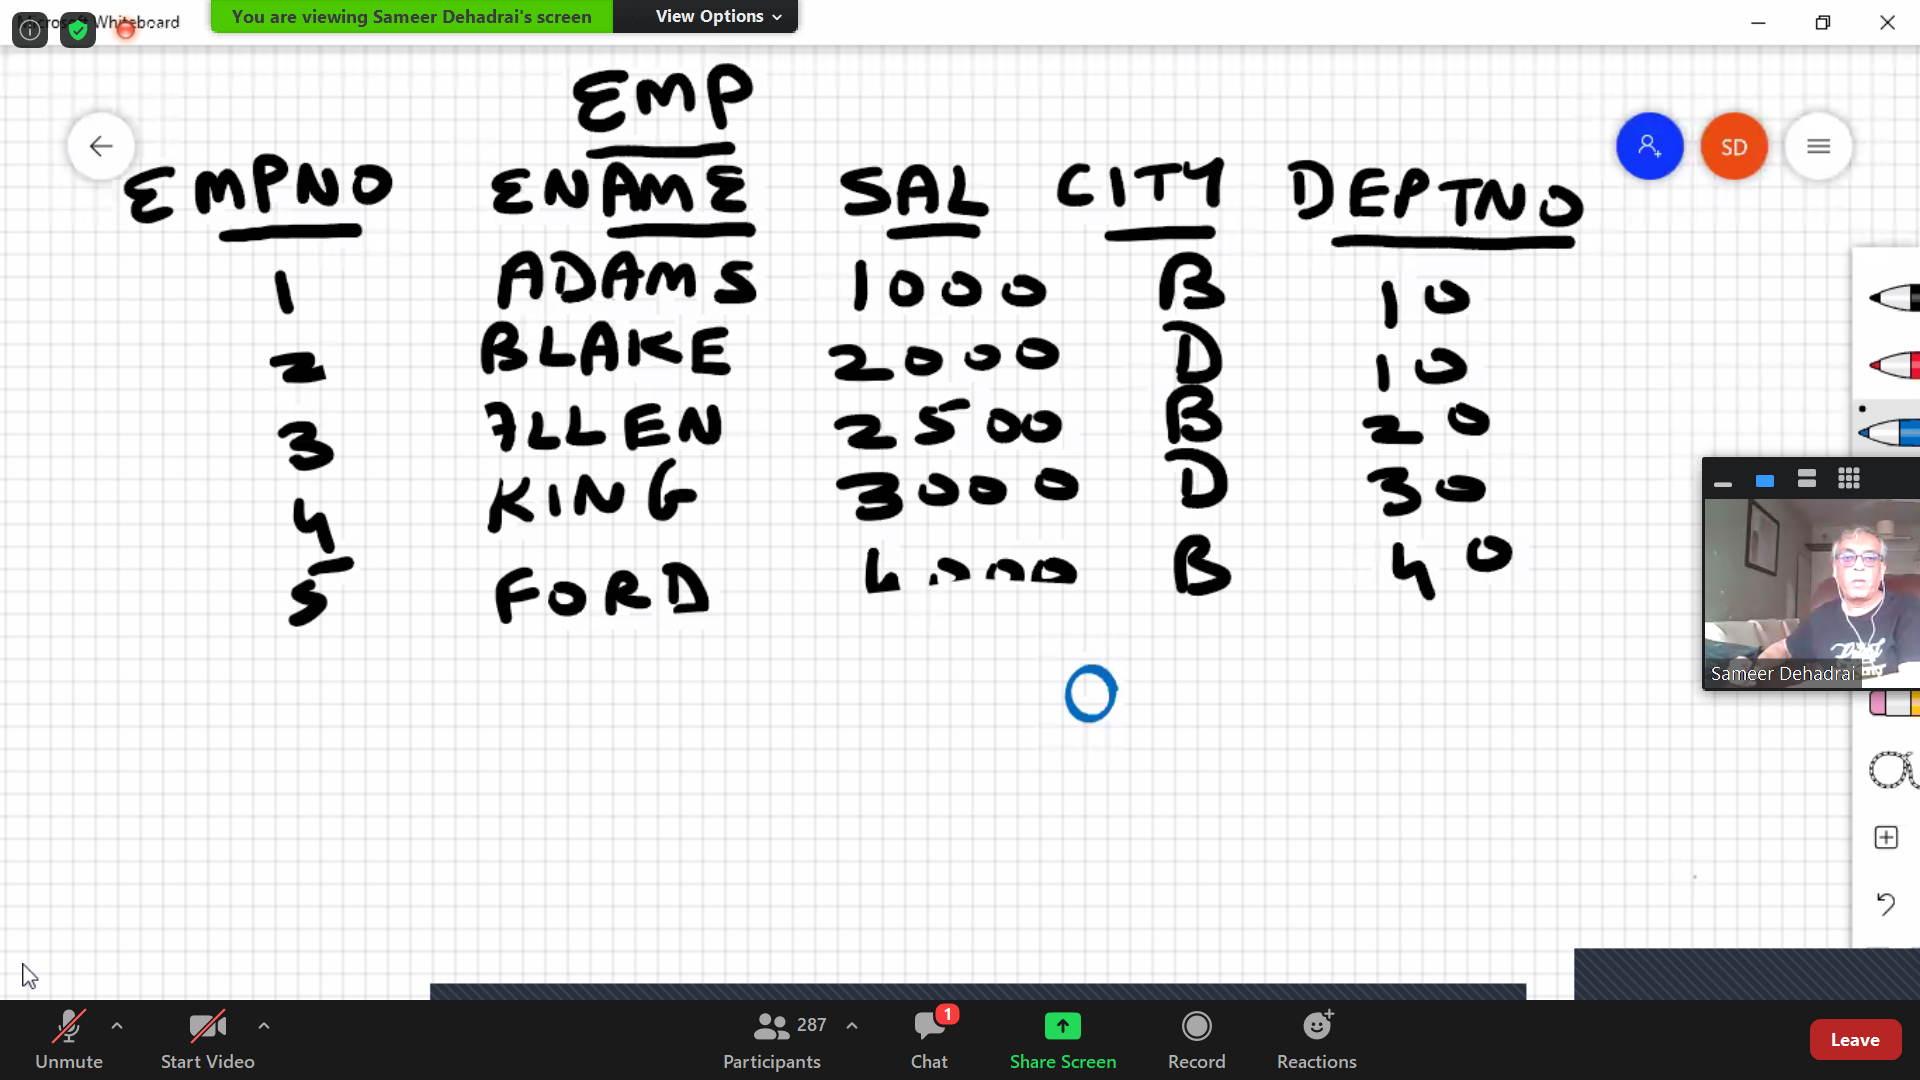 Microsoft Whiteboard
You are viewing Sameer Dehadrai's screen View Options
EMP
EMPNO ENAME SAL CITY DEPTNO
SD
1 ADAMS 1000 B 10
2 BLAKE 2000 D 10
3 ALLEN 2500 B 20
4 KING 3000 D 30
5 FORD 4000 B 40
Sameer Dehadrai
Unmute Start Video 287 Participants 1 Chat Share Screen Record Reactions Leave